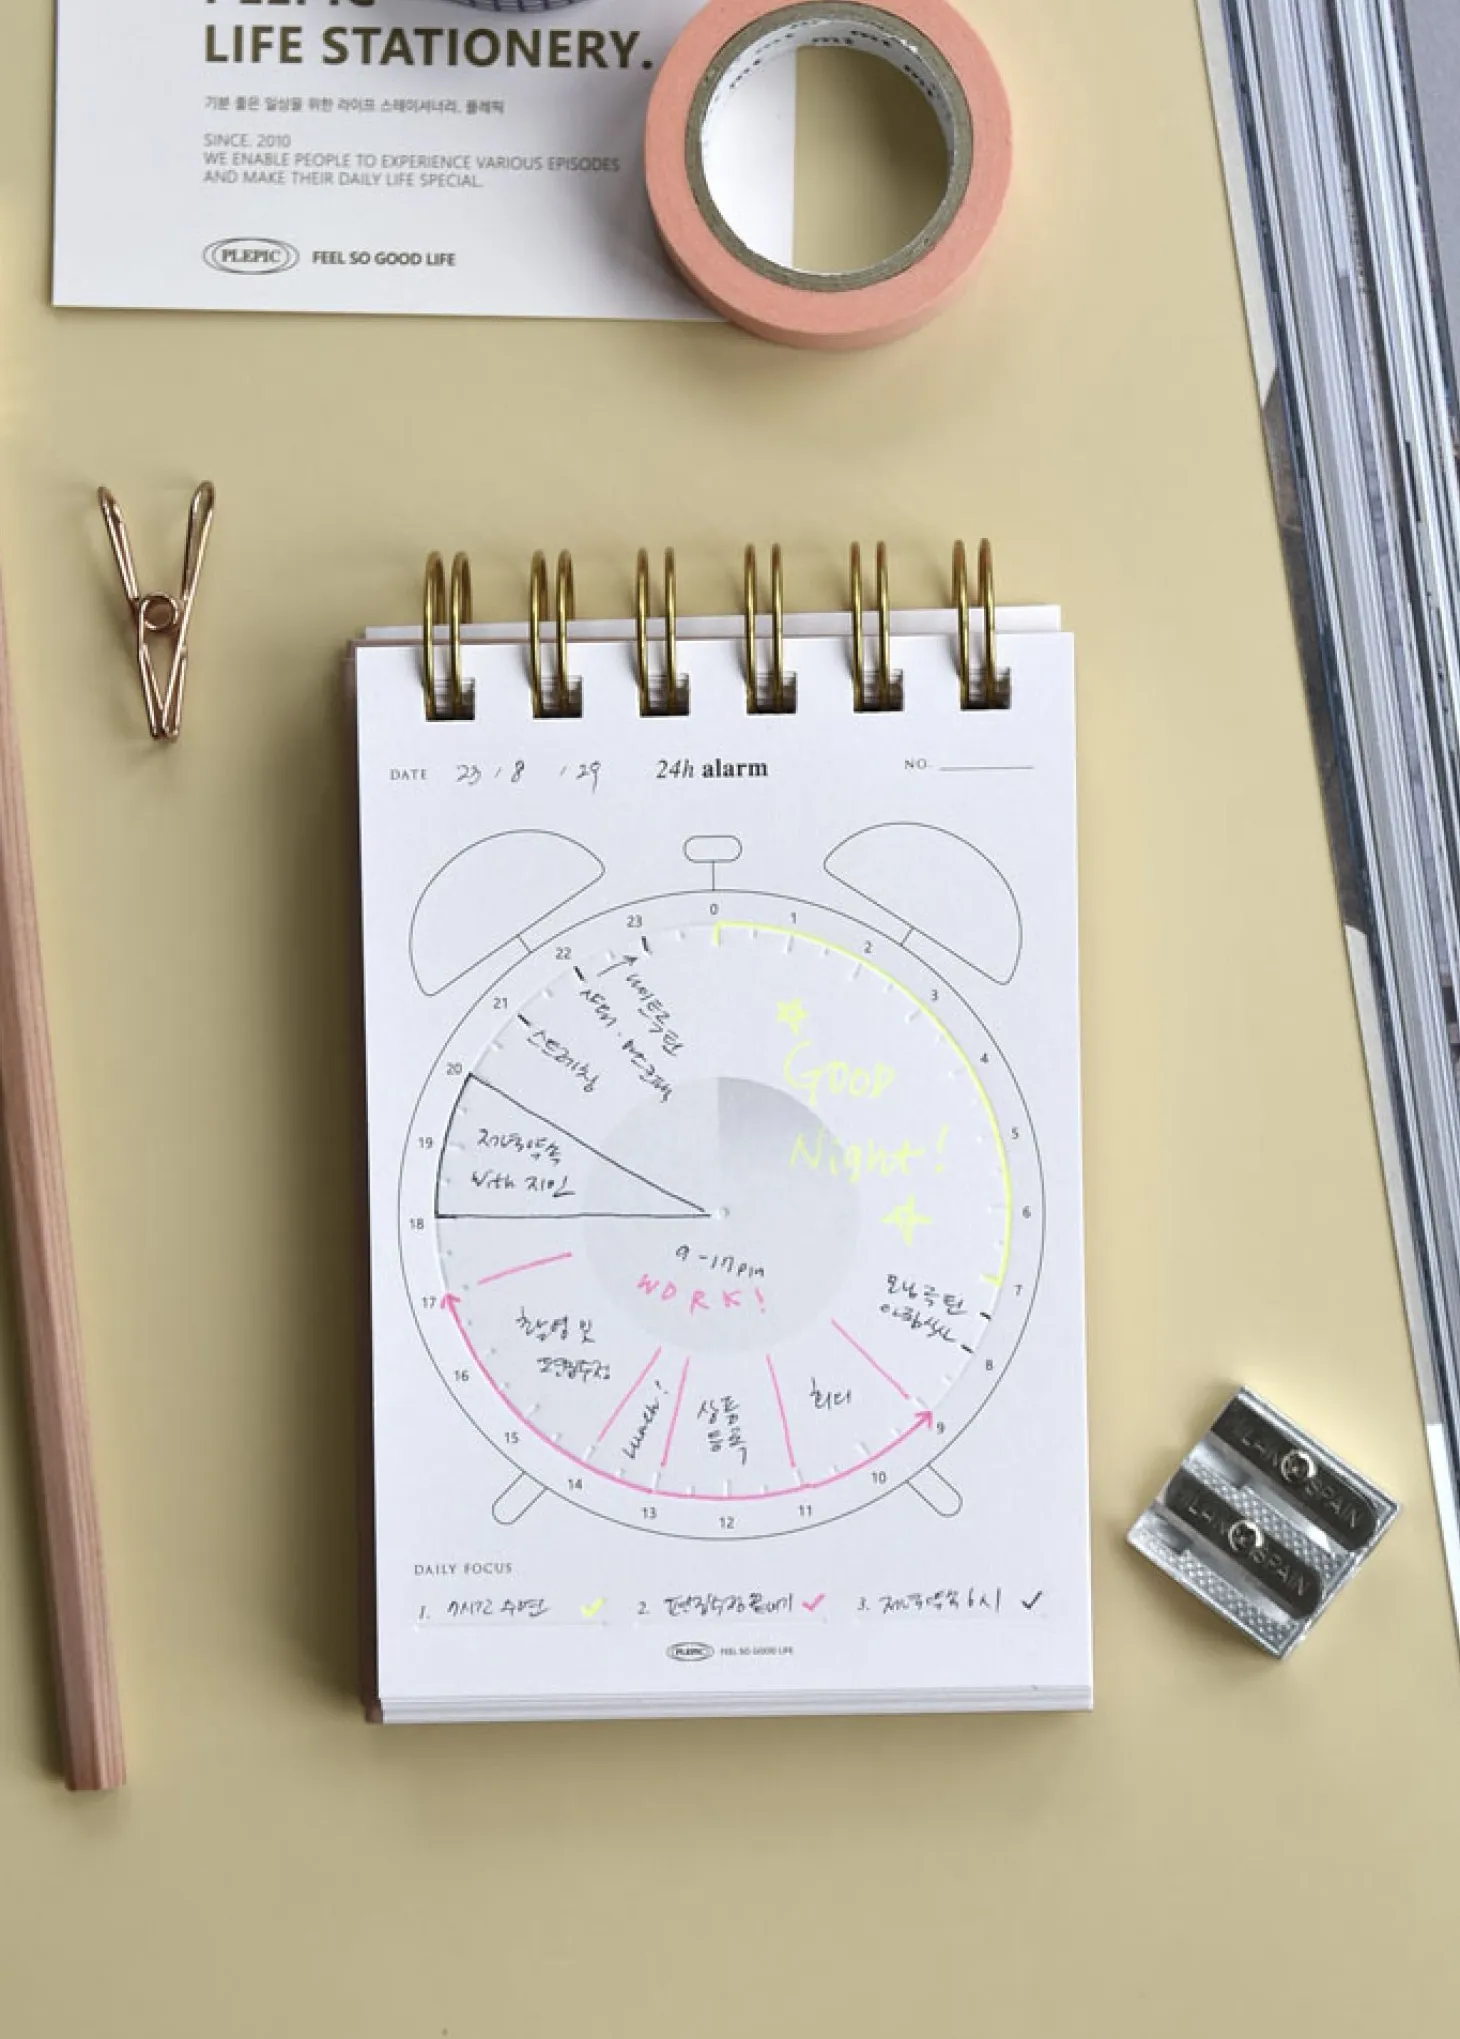 LIFE STATIONERY.
기분 좋은 일상을 위한 라이프 스테이셔너리, 플레픽
SINCE. 2010
WE ENABLE PEOPLE TO EXPERIENCE VARIOUS EPISODES
AND MAKE THEIR DAILY LIFE SPECIAL.
PLEPIC FEEL SO GOOD LIFE
mt mt mt
DATE 23 / 8 / 29 24h alarm NO.
0
1
2
3
4
5
6
7
8
9
10
11
12
13
14
15
16
17
18
19
20
21
22
23
GOOD
Night!
모닝루틴
아침식사
회의
상품
등록
Lunch!
촬영 및
편집수정
9-17pm
WORK!
저녁약속
with 지인
스트레칭
샤워
나이트루틴
DAILY FOCUS
1. 7시간 수면 ✓ 2. 편집수정 끝내기 ✓ 3. 저녁약속 6시 ✓
PLEPIC FEEL SO GOOD LIFE
SPAIN
SPAIN